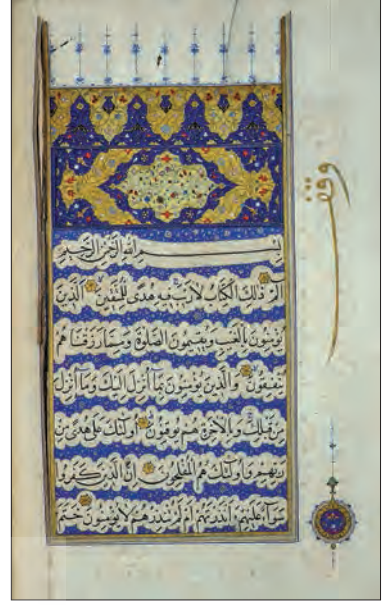 بسم الله الرحمن الرحيم
الم ذلك الكتاب لا ريب فيه هدى للمتقين الذين
يؤمنون بالغيب ويقيمون الصلوة ومما رزقناهم
ينفقون والذين يؤمنون بما أنزل إليك وما أنزل
من قبلك وبالآخرة هم يوقنون أولئك على هدى من
ربهم وأولئك هم المفلحون إن الذين كفروا
سواء عليهم ءأنذرتهم أم لم تنذرهم لا يؤمنون ختم
وقف